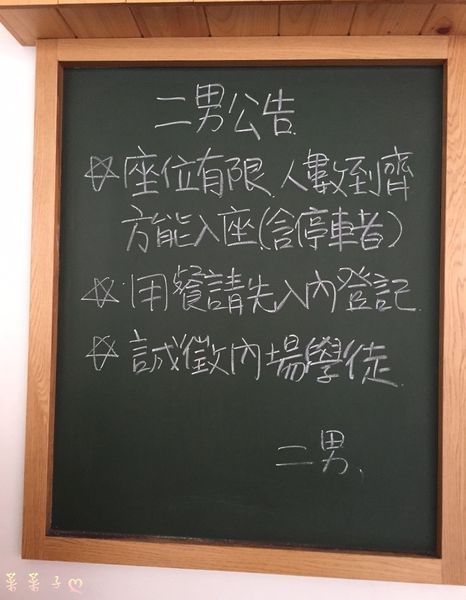 二男公告
☆座位有限.人數到齊
方能入座(含停車者)
☆用餐請先入內登記.
☆誠徵內場學徒.
二男、
菜菜子